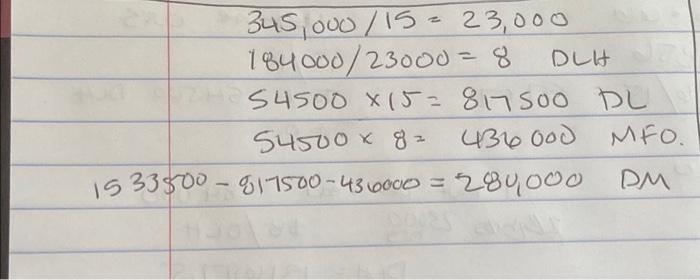 345,000/15 = 23,000
184000/23000 = 8 DLH
54500 x 15 = 817500 DL
54500 x 8 = 436000 MFO.
1533500 - 817500 - 436000 = 280,000 DM